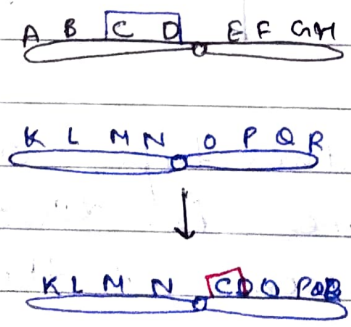 A B C D E F G H
K L M N O P Q R
K L M N C D O P Q R